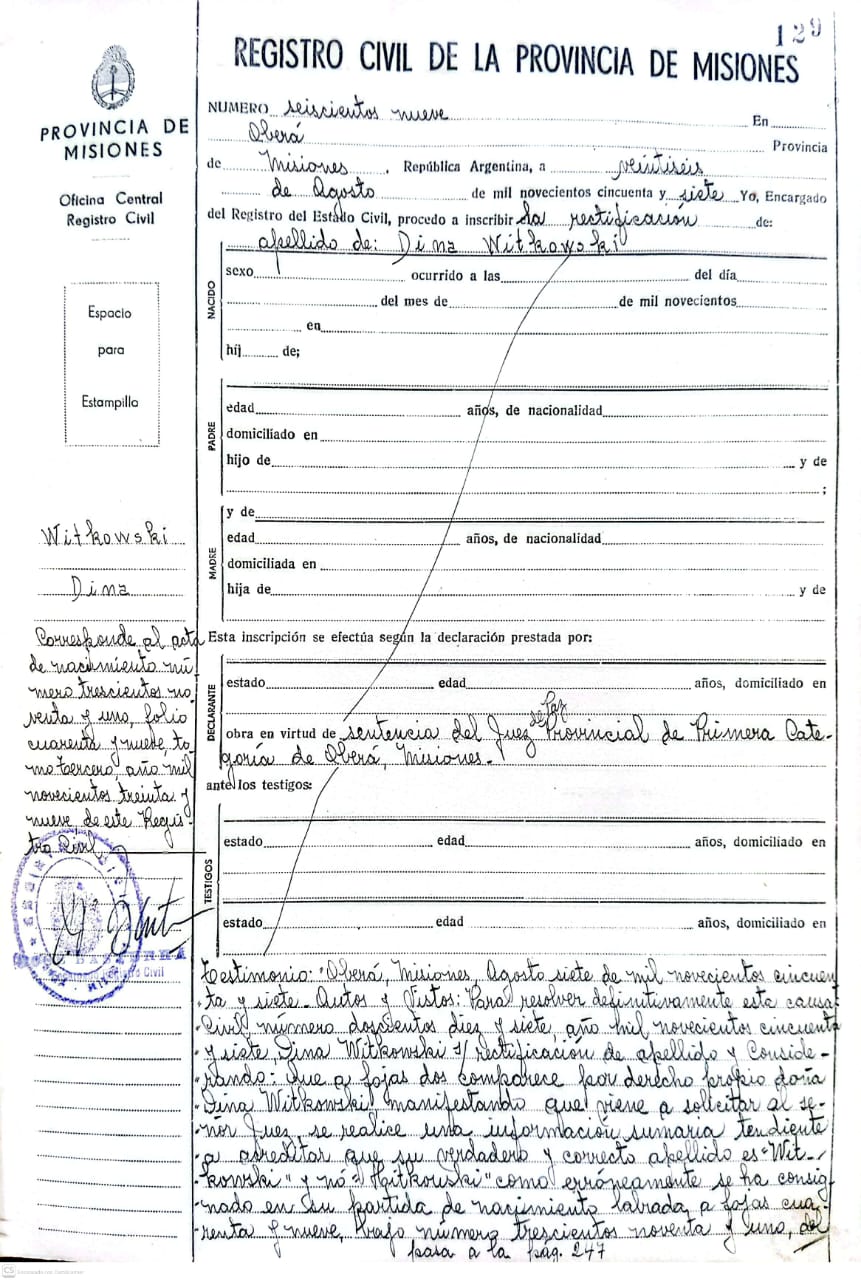 129
REGISTRO CIVIL DE LA PROVINCIA DE MISIONES
PROVINCIA DE
MISIONES
Oficina Central
Registro Civil
Espacio
para
Estampilla
NUMERO seiscientos nueve En
Oberá Provincia
de Misiones, República Argentina, a veintiséis
de Agosto de mil novecientos cincuenta y siete Yo, Encargado
del Registro del Estado Civil, procedo a inscribir la rectificación de:
apellido de: Dina Witkowski
NACIDO
sexo ocurrido a las del día
del mes de de mil novecientos
en
hij de;
PADRE
edad años, de nacionalidad
domiciliado en
hijo de y de
;
MADRE
y de
edad años, de nacionalidad
domiciliada en
hija de y de
Witkowski
Dina
Corresponde al acta
de nacimiento nú
mero trescientos no
venta y uno, folio
cuarenta y nueve, to
mo tercero, año mil
novecientos treinta y
nueve de este Regis-
tro Civil
Registro Civil
Esta inscripción se efectúa según la declaración prestada por:
DECLARANTE
estado edad años, domiciliado en
de Paz
obra en virtud de sentencia del Juez Provincial de Primera Cate-
goría de Oberá, Misiones.-
ante los testigos:
TESTIGOS
estado edad años, domiciliado en
estado edad años, domiciliado en
Testimonio: "Oberá, Misiones, Agosto siete de mil novecientos cincuen
ta y siete. Autos y Vistos: Para resolver definitivamente esta causa
Civil número doscientos diez y siete, año mil novecientos cincuenta
y siete, Dina Witkowski s/ rectificación de apellido y Conside-
rando: Que a fojas dos comparece por derecho propio doña
Dina Witkowski manifestando que viene a solicitar al se-
ñor Juez, se realice una información sumaria tendiente
a acreditar que su verdadero y correcto apellido es "Wit-
kowski" y nó "Hitkouski" como erróneamente se ha consig
nado en su partida de nacimiento labrada a fojas cua-
renta y nueve, bajo número trescientos noventa y uno, del
pasa a la pág. 247
CS Escaneado con CamScanner